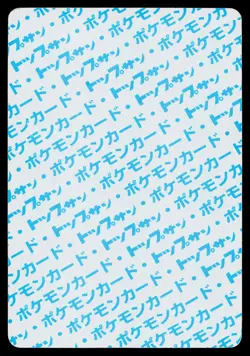 ポケモン
トップサン・ポケモンカード
ポケモンカード・トップサン・
トップサン・ポケモンカード・
カード・トップサン・ポケモンカード
・ポケモンカード・トップサン・
トップサン・ポケモンカード・
カード・トップサン・ポケモンカード
ポケモンカード・トップサン・
トップサン・ポケモンカード・
カード・トップサン・ポケモンカード
ポケモンカード・トップサン・
ポケモンカード・